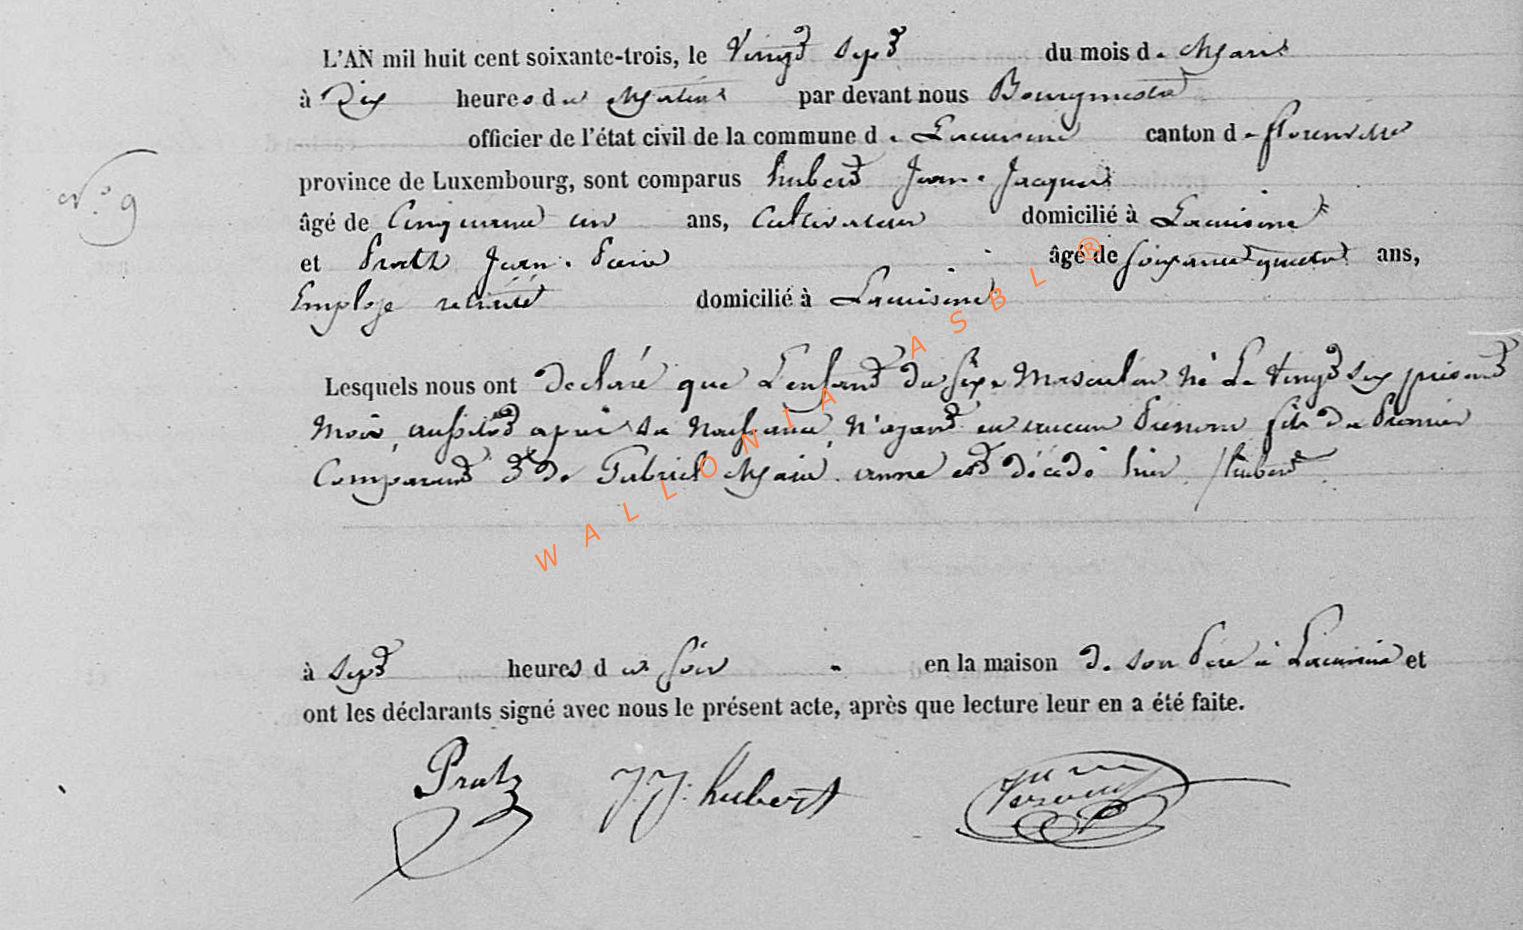 L'AN mil huit cent soixante-trois, le Vingt sept du mois de Mars
à Dix heures du Matin par devant nous Bourgmestre
officier de l'état civil de la commune de Lacuisine canton de florenville
N.° 9
province de Luxembourg, sont comparus hubert Jean-Jacques
âgé de Cinquante un ans, Cultivateur domicilié à Lacuisine
et Pratz Jean-Pierre âgé de soixante quatre ans,
Employé retraité domicilié à Lacuisine
Lesquels nous ont declaré que L'enfant du sexe Masculin Né Le Vingt six présent
Mois, aussitôt après sa Naissance, N'ayant eu aucun Prenom fils du Premier
Comparant et de Gabriel Marie anne est décédé hier hubert
à sept heures du soir en la maison de son Père à Lacuisine et
ont les déclarants signé avec nous le présent acte, après que lecture leur en a été faite.
Pratz J. J. hubert
WALLONIA ASBL ®